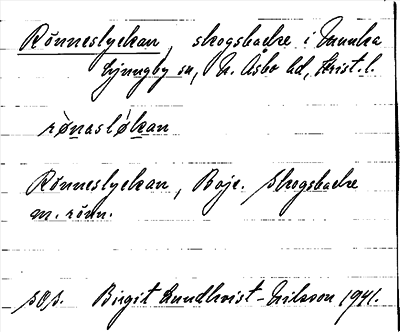 Rönneslyckan, skogsbacke i Munka
Ljungby sn, N. Åsbo hd, Krist. l.
rönasløkan
Rönneslyckan, Boje. Skogsbacke
m. rönn.
sØs. Birgit Lundkvist-Nilsson 1941.